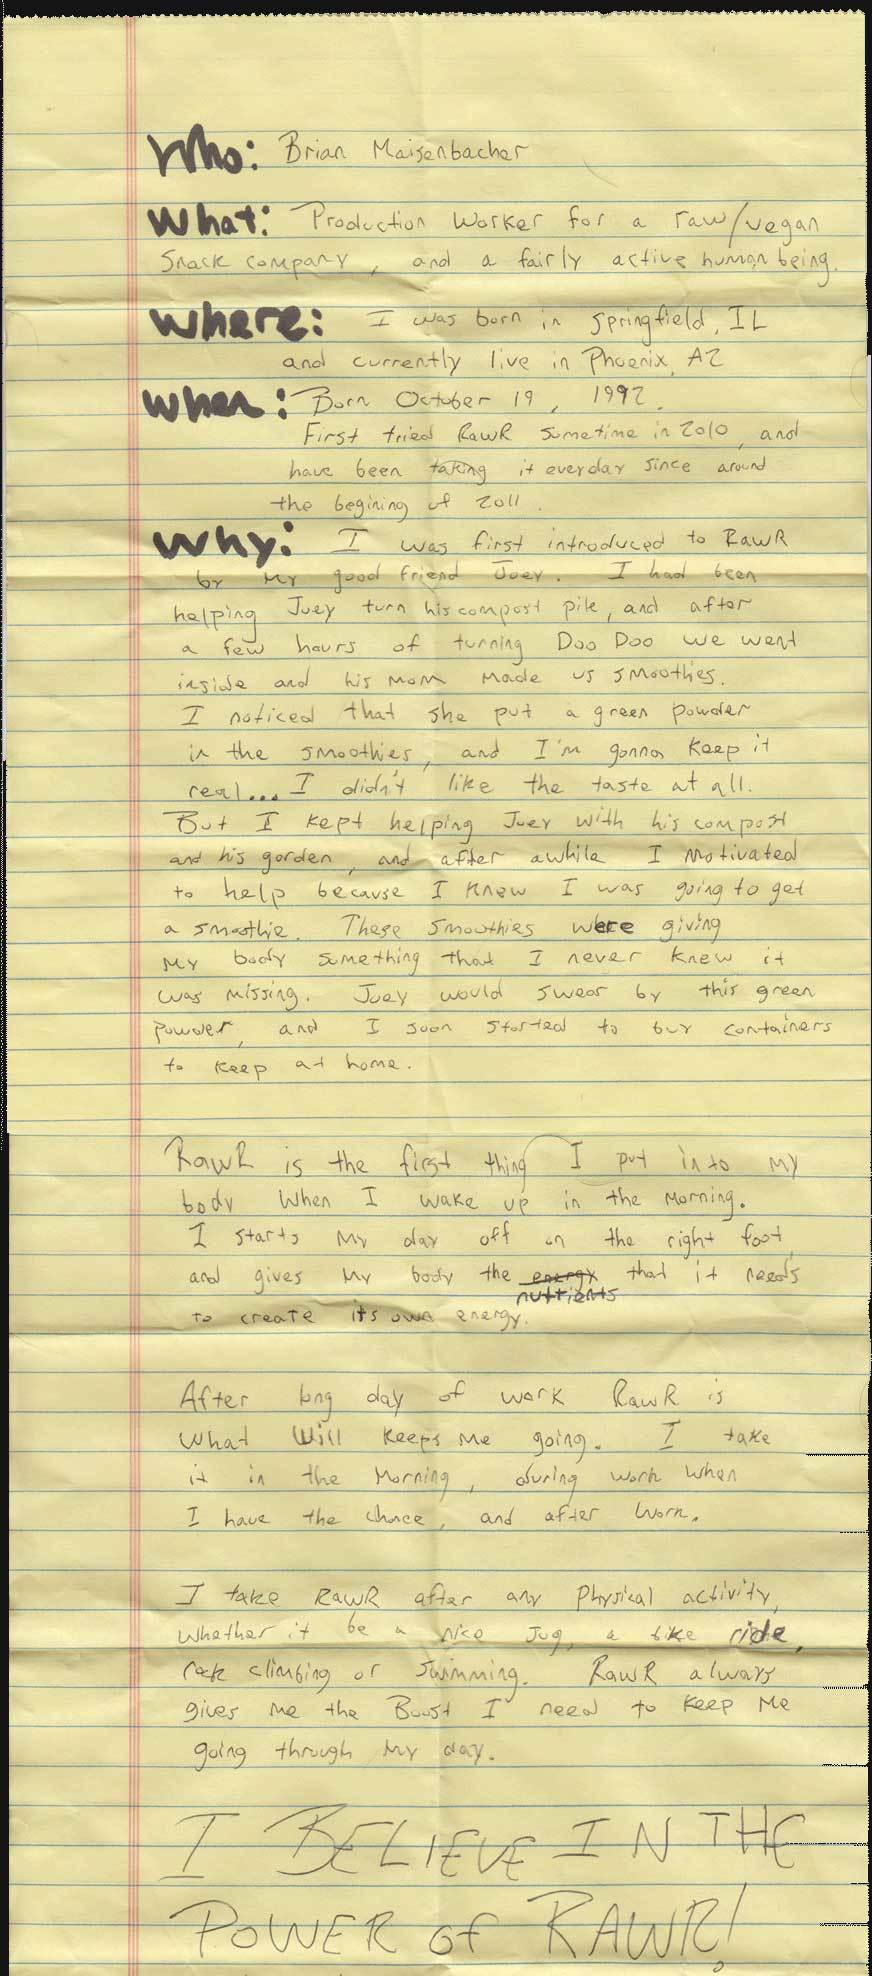 Who: Brian Maisenbacher
What: Production Worker for a raw/vegan
Snack company, and a fairly active human being.
Where: I was born in Springfield, IL
and currently live in Phoenix, AZ
When: Born October 19, 1992.
First tried RawR sometime in 2010, and
have been taking it everday since around
the begining of 2011.
Why: I was first introduced to RawR
by my good friend Joey. I had been
helping Joey turn his compost pile, and after
a few hours of turning Doo Doo we went
inside and his mom made us smoothies.
I noticed that she put a green powder
in the smoothies, and I'm gonna keep it
real... I didn't like the taste at all.
But I kept helping Joey with his compost
and his garden, and after awhile I motivated
to help because I knew I was going to get
a smoothie. These smoothies were giving
my body something that I never knew it
was missing. Joey would swear by this green
powder, and I soon started to buy containers
to keep at home.
RawR is the first thing I put into my
body when I wake up in the morning.
I starts my day off on the right foot,
and gives my body the energy that it needs
nutrients
to create its own energy.
After long day of work RawR is
what will keeps me going. I take
it in the morning, during work when
I have the chance, and after work.
I take RawR after any physical activity,
whether it be a nice jog, a bike ride,
rock climbing or swimming. RawR always
gives me the Boost I need to keep me
going through my day.
I BELIEVE IN THE
POWER of RAWR!